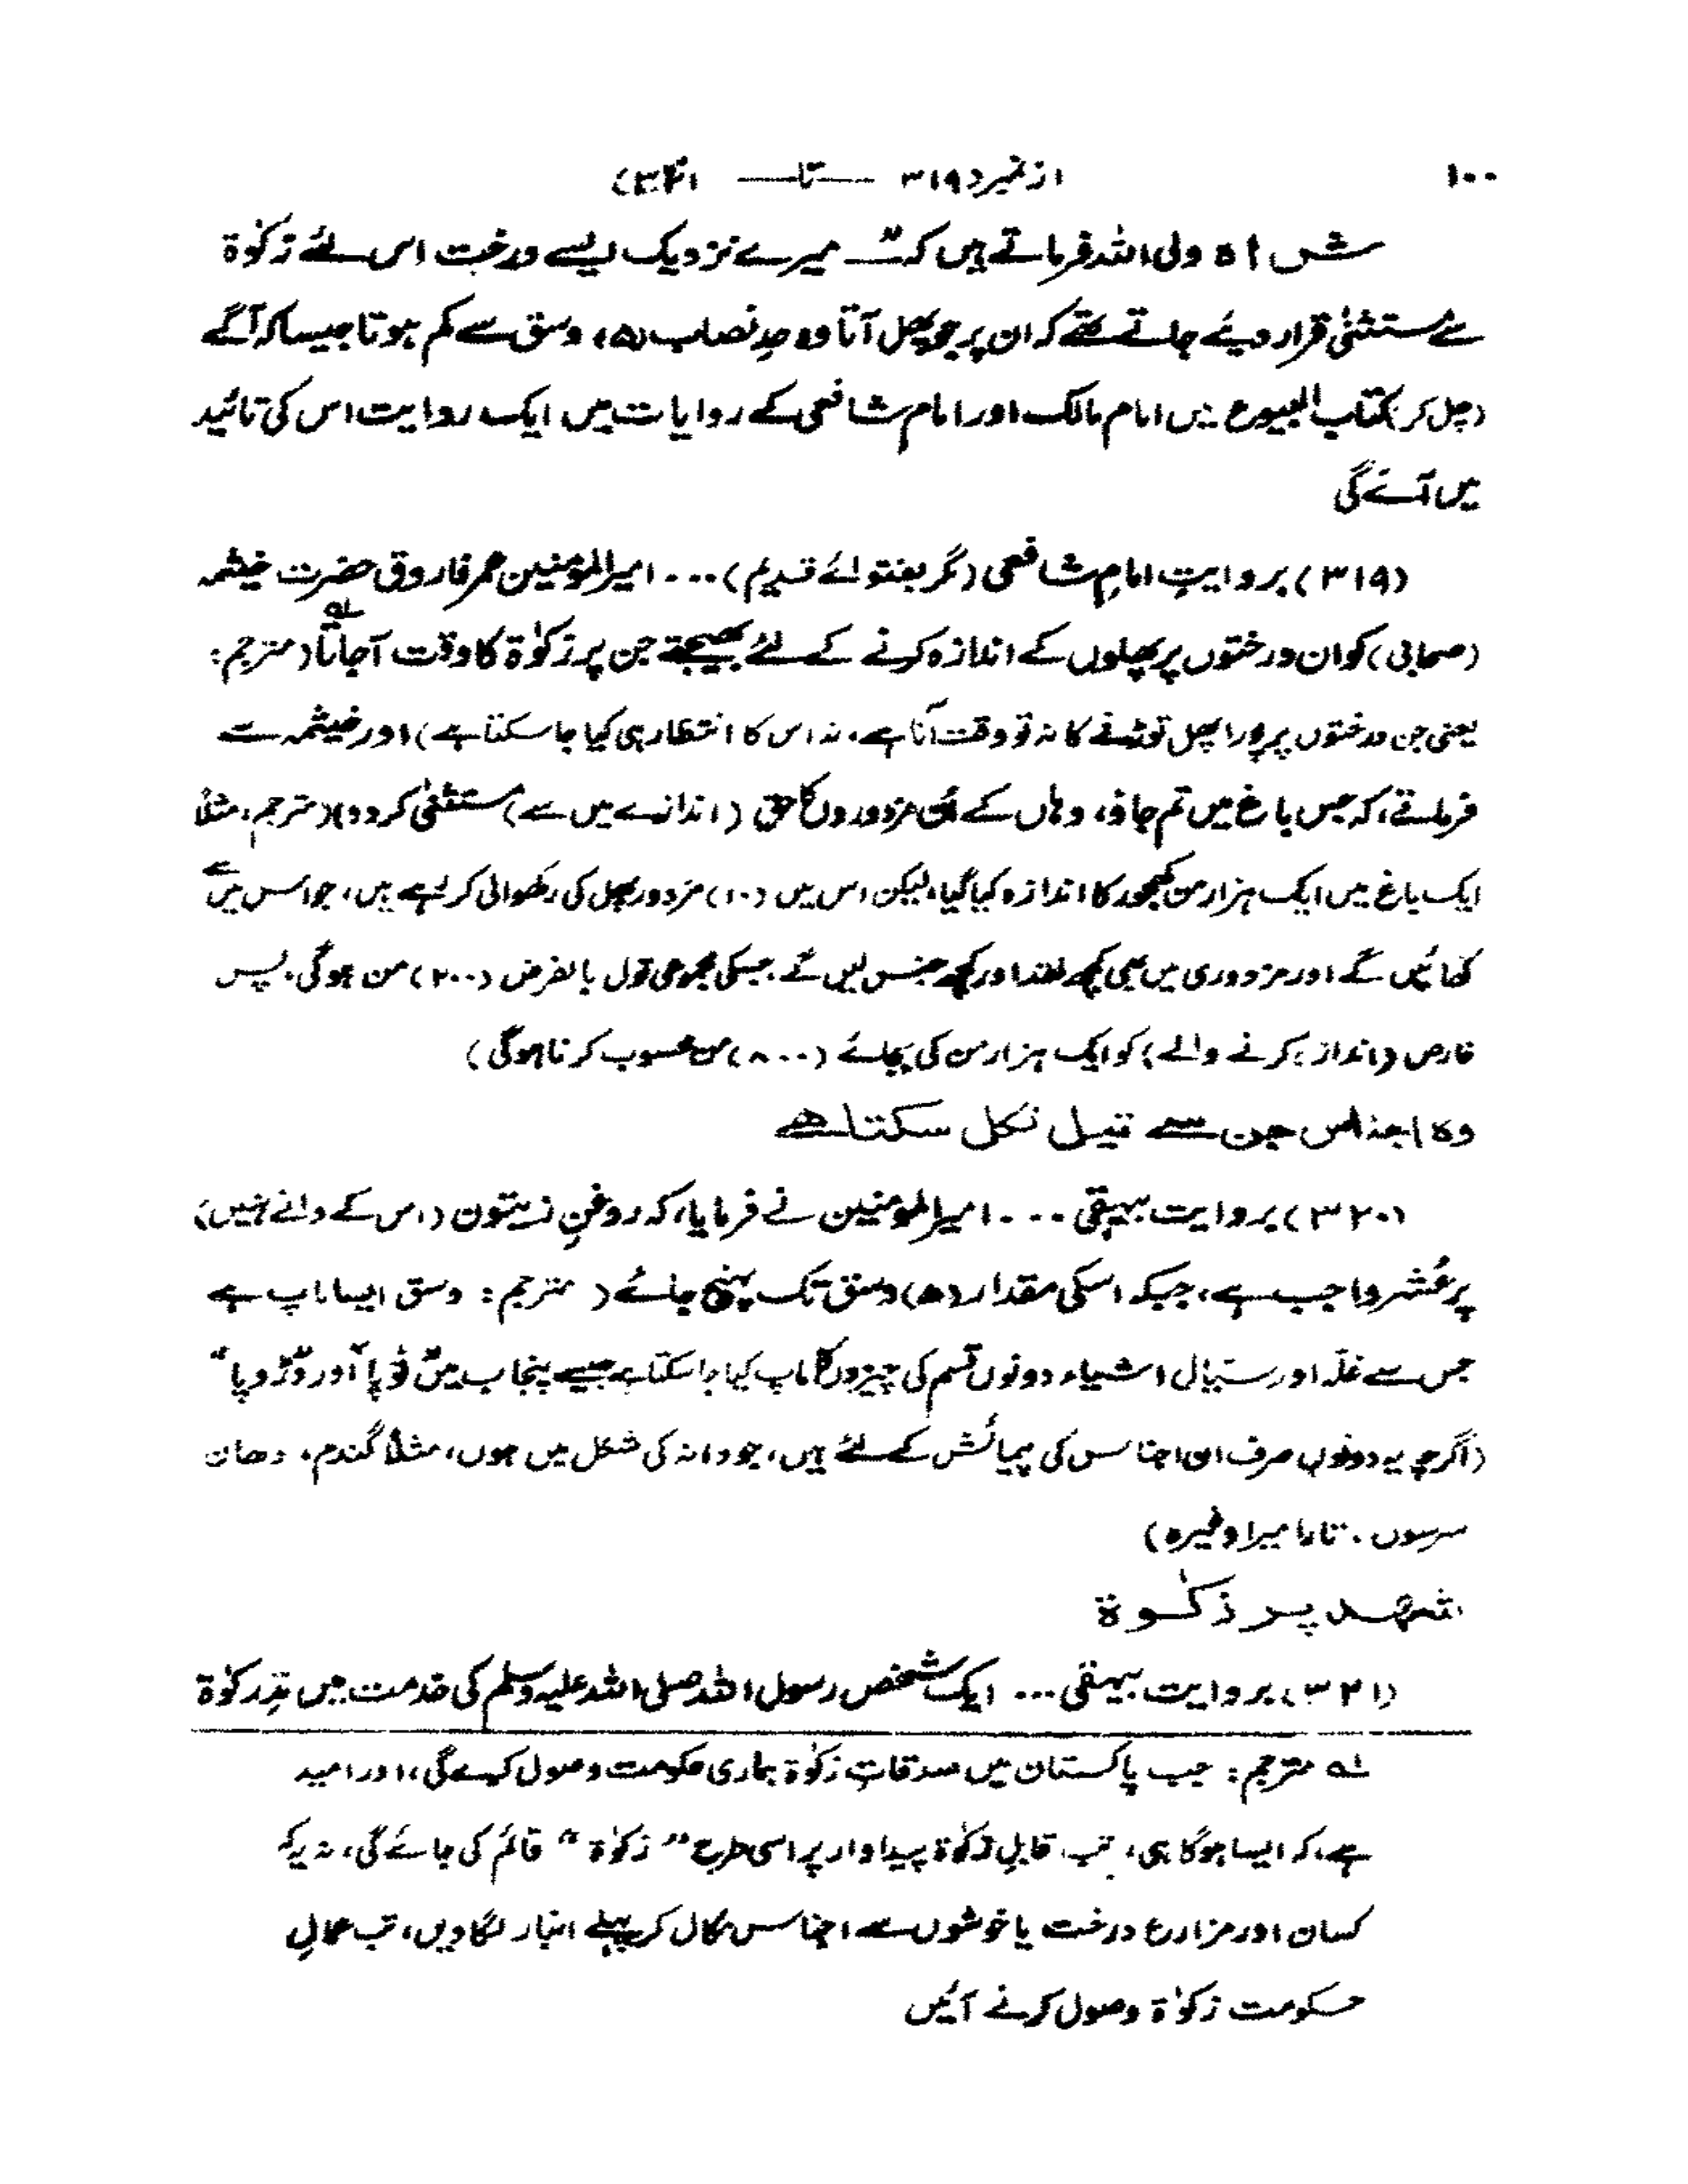 ۱۰۰ از نمبر (۳۱۹ — تا — ۳۲۱)
شاہ ولی اللہ فرماتے ہیں کہ ”میرے نزدیک ایسے درخت اس لئے زکوٰۃ
سے مستثنیٰ قرار دیئے جاتے تھے کہ ان پر جو پھل آتا وہ حدِ نصاب (۵) وسق سے کم ہوتا جیسا کہ آگے
(چل کر) کتاب البیوع میں امام مالک اور امام شافعی کے روایات میں ایک روایت اس کی تائید
میں آئے گی
(۳۱۹) بروایتِ امامِ شافعی (مگر بفتوائے قدیم) ... امیر المؤمنین عمر فاروق حضرت خیثمہ
(صحابی) کو ان درختوں پر پھلوں کے اندازہ کرنے کے لئے بھیجتے جن پر زکوٰۃ کا وقت آجاتا لہ (مترجم:
یعنی جن درختوں پر پورا پھل توڑنے کا نہ تو وقت آتا ہے، نہ اس کا انتظار ہی کیا جا سکتا ہے) اور خیثمہ سے
فرماتے، کہ جس باغ میں تم جاؤ، وہاں کے ان مزدوروں کا حق (اندازے میں سے) مستثنیٰ کر دو) (مترجم، مثلاً
ایک باغ میں ایک ہزار من کھجور کا اندازہ کیا گیا، لیکن اس میں (۱۰) مزدور پھل کی رکھوالی کر رہے ہیں، جو اس میں سے
کھائیں گے اور مزدوری میں بھی کچھ نقد اور کچھ جنس لیں گے۔ جسکی مجموعی تول بالفرض (۲۰۰) من ہوگی۔ پس
خارص (اندازہ کرنے والے) کو ایک ہزار من کی بجائے (۸۰۰) من محسوب کرنا ہوگی)
وہ اجناس جن سے تیل نکل سکتا ہے
(۳۲۰) بروایت بیہقی ... امیر المؤمنین نے فرمایا، کہ روغنِ زیتون (اس کے دانے نہیں)
پر عُشر واجب ہے، جبکہ اسکی مقدار (۵) وسق تک پہنچ جائے (مترجم: وسق ایسا ماپ ہے
جس سے غلّہ اور سیّال اشیاء دونوں قسم کی چیزوں کا ماپ کیا جا سکتا ہے جیسے پنجاب میں ”ٹوپا“ اور ”دڑوپا“
(اگرچہ یہ دونوں صرف ان اجناس کی پیمائش کے لئے ہیں، جو دانہ کی شکل میں ہوں، مثلاً گندم، دھان
سرسوں، تارا میرا وغیرہ)
شہد پر زکوٰۃ
(۳۲۱) بروایت بیہقی ... ایک شخص رسول اللہ صلی اللہ علیہ وسلم کی خدمت میں نذرِ زکوٰۃ
لہ مترجم: جب پاکستان میں صدقاتِ زکوٰۃ ہماری حکومت وصول کرے گی، اور امید
ہے، کہ ایسا ہوگا ہی، تب قابلِ زکوٰۃ پیداوار پر اسی طرح ”زکوٰۃ“ قائم کی جائے گی، نہ یہ کہ
کسان اور مزارع درخت یا خوشوں سے اجناس نکال کر پہلے انبار لگا دیں، تب عمالِ
حکومت زکوٰۃ وصول کرنے آئیں